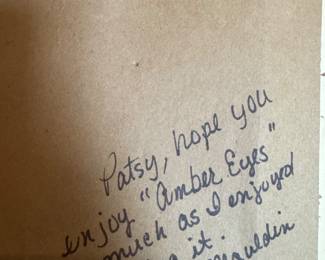 Patsy, hope you
enjoy "Amber Eyes"
much as I enjoyed
it.
Mauldin